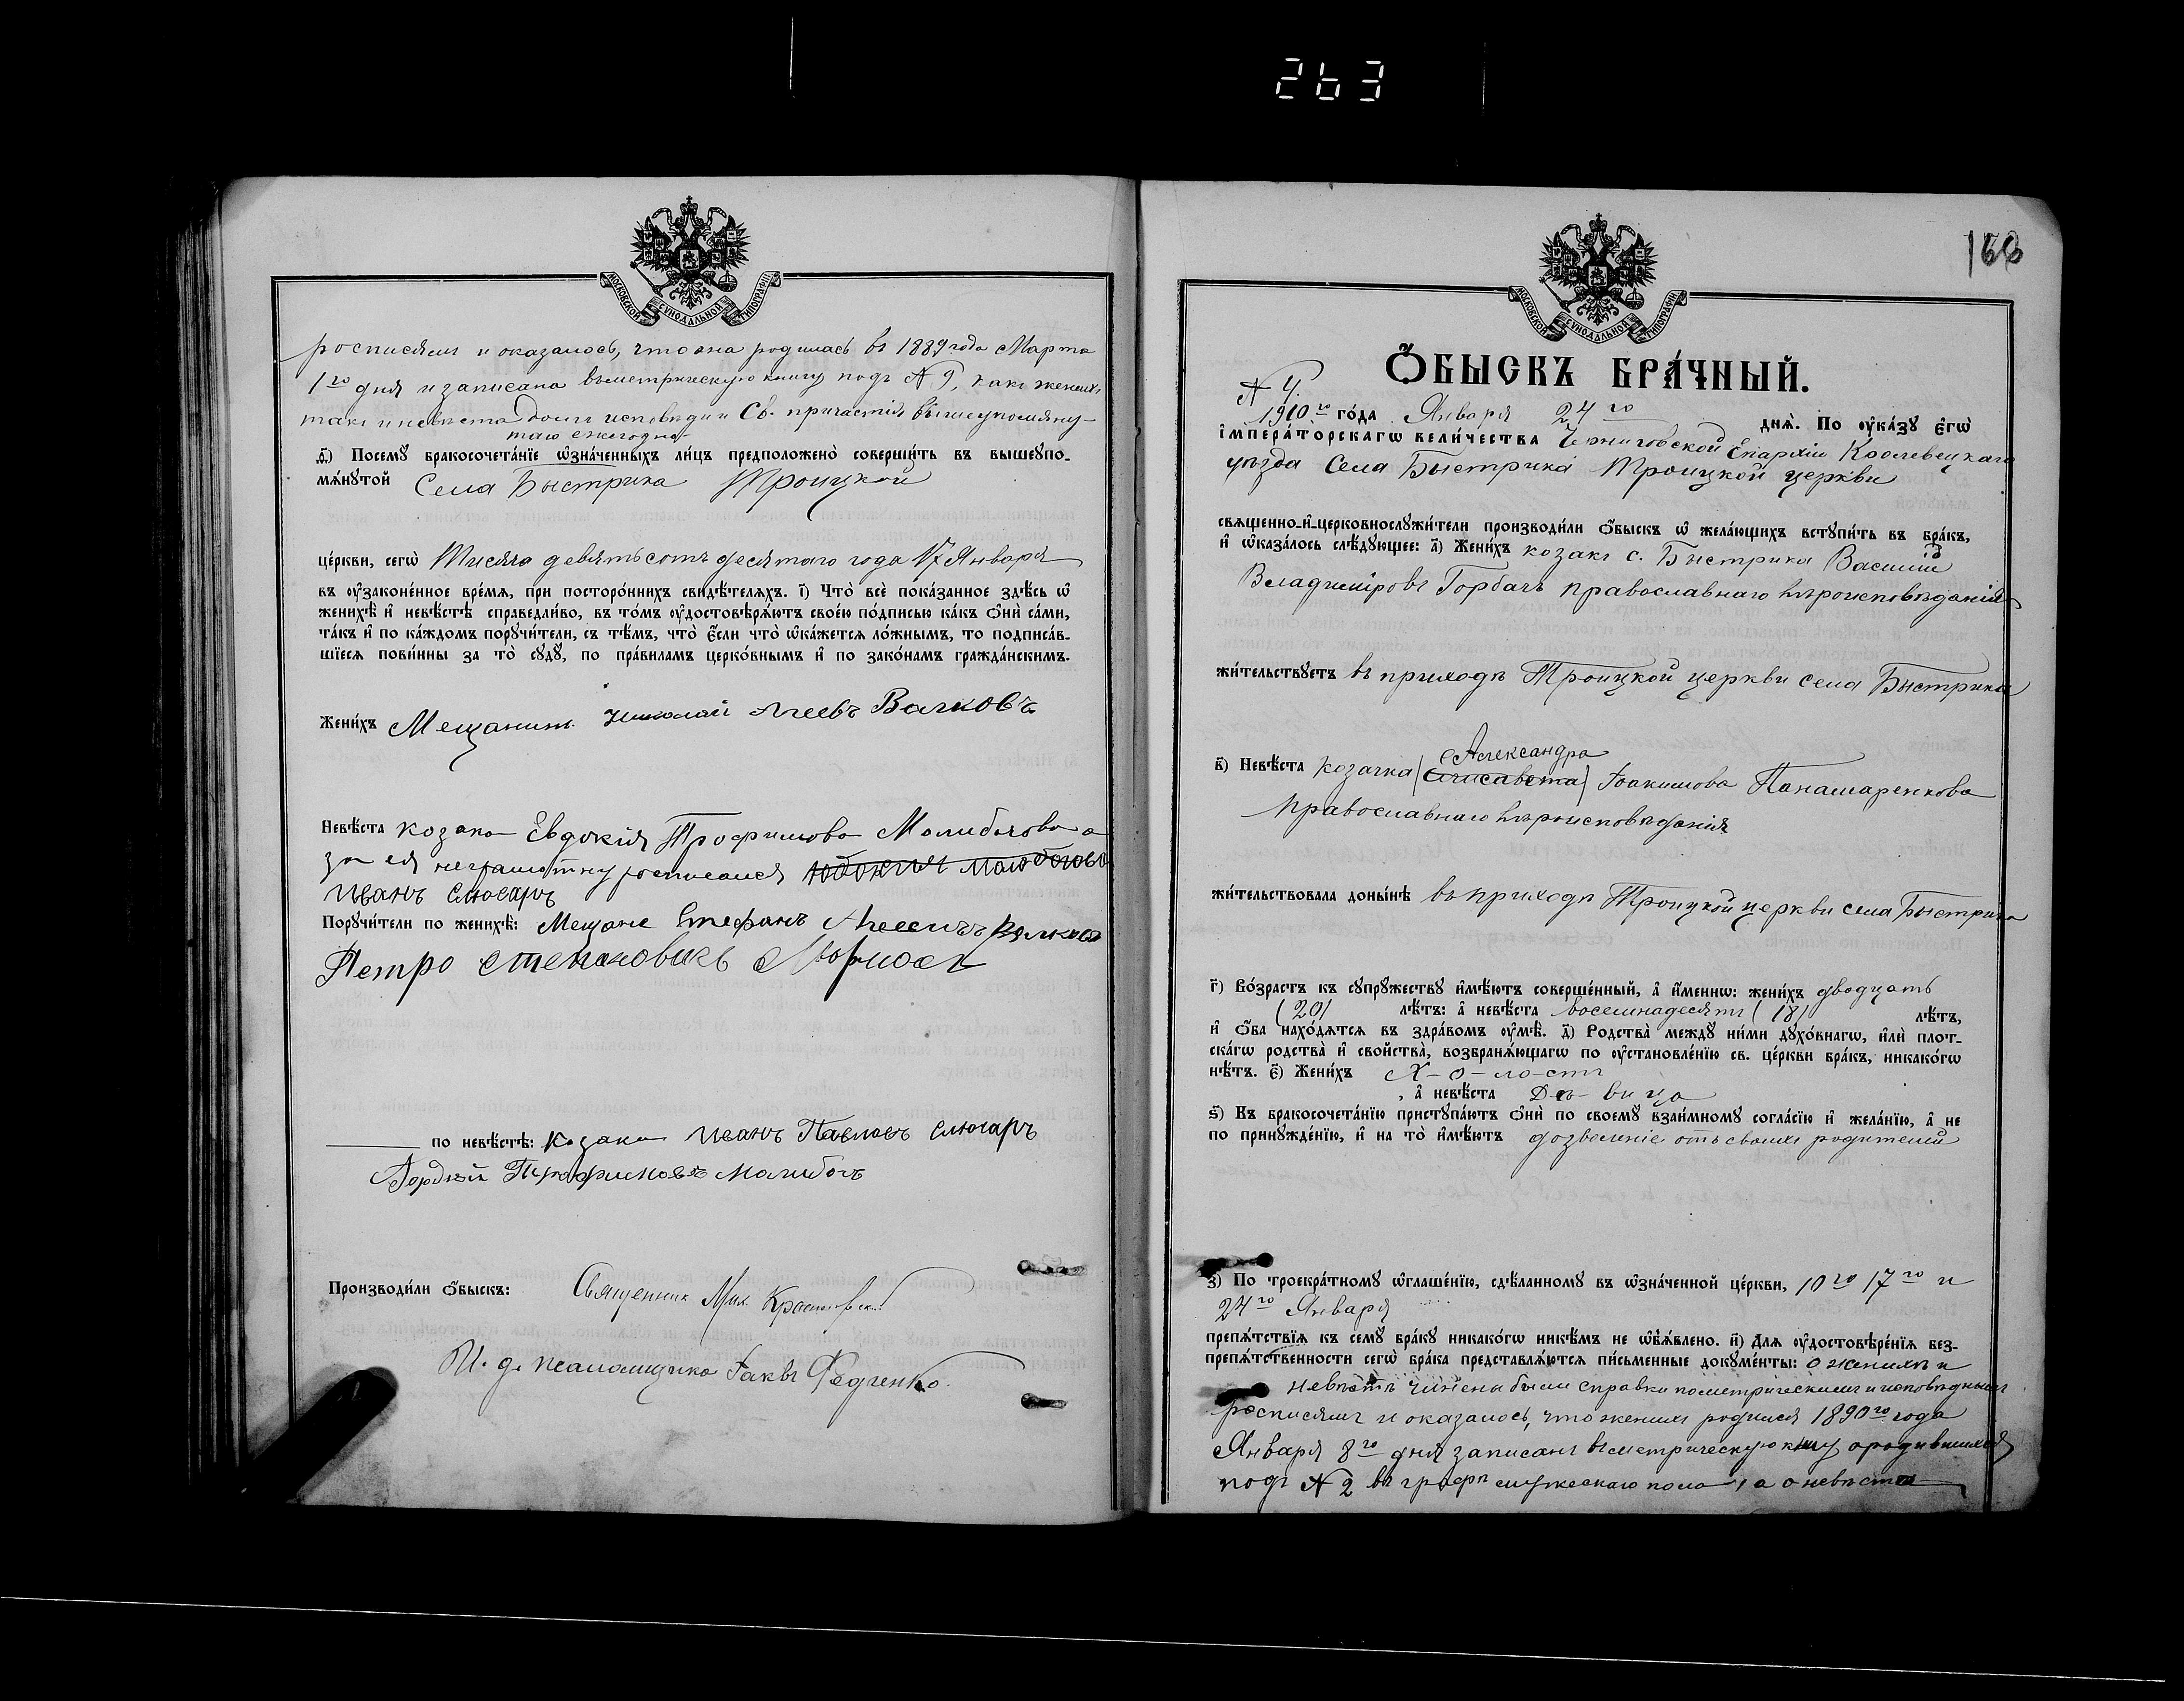 263
МОСКОВСКОЙ СѴНОДАЛЬНОЙ ТИПОГРАФІИ
росписямъ и оказалось, что она родилась въ 1889 года Марта
1го дня и записана въ метрическую книгу подъ № 9, какъ женихъ
такъ и невѣста были исповѣди и Св. причастія вышеупомяну-
таго ежегодно
Посемꙋ бракосочета́нїе ѡзна́ченныхъ ли́цъ предположено̀ соверши́ть въ вышеупо-
мѧ́нꙋтой Села Быстрика Троицкой
це́ркви, сегѡ̀ Тысяча девятьсотъ десятаго года 17 Января
въ ᲂу҆зако́ненное вре́мѧ, при посторо́ннихъ свидѣ́телѧхъ. і҃) Что̀ всѐ пока́занное здѣ́сь ѡ҆
женихѣ̀ и҆ невѣ́стѣ справедли́во, въ то́мъ ᲂу҆достовѣрѧ́ютъ свое́ю по́дписью ка́къ ѻ҆нѝ са́ми,
та́къ и҆ по ка́ждомъ порꙋчи́тели, съ тѣ́мъ, что̀ є҆́сли что̀ ѡ҆ка́жетсѧ ло́жнымъ, то подписа́в-
шїесѧ пови́нны за то̀ сꙋдꙋ̀, по пра́виламъ церко́внымъ и҆ по зако́намъ гражда́нскимъ.
Жени́хъ Мещанинъ Николай Агеевъ Валковъ
Невѣ́ста козачка Евдокія Трофимова Малибогова а
за ея неграмотну росписался
Иванъ Слюсарь
Порꙋчи́тели по женихѣ̀: Мещане Стефанъ Агеевъ Валковъ
Петро Степановичъ
по невѣ́стѣ: Козаки Иванъ Павловъ Слюсарь
Гордѣй Трофимовъ Малибогъ
Производи́ли ѻ҆́быскъ: Священник Мих. Краснопольскій
И. д. псаломщика Іаковъ Федченко
160
МОСКОВСКОЙ СѴНОДАЛЬНОЙ ТИПОГРАФІИ
Ѻ҆́БЫСКЪ БРА́ЧНЫЙ.
№ 4.
1910го го́да Января 24го днѧ̀. По ᲂу҆ка́зꙋ є҆гѡ̀
і҆мпера́торскагѡ вели́чества Черниговской Епархіи Кролевецкаго
уѣзда Села Быстрика Троицкой церкви
свѧщенно-и҆-церковнослꙋжи́тели производи́ли ѻ҆́быскъ ѡ҆ жела́ющихъ встꙋпи́ть въ бра́къ,
и҆ ѡ҆каза́лось слѣ́дꙋющее: а҃) Жени́хъ козакъ с. Быстрика Василій
Владиміровъ Горбачъ православнаго вѣроисповѣданія
жи́тельствꙋетъ въ приходѣ Троицкой церкви села Быстрика
Александра
в҃) Невѣ́ста козачка (Елисавета) Іоакимова Панамаренкова
православнаго вѣроисповѣданія
жи́тельствовала доны́нѣ въ приходѣ Троицкой церкви села Быстрика
г҃) Во́зрастъ къ сꙋпрꙋ́жествꙋ и҆мѣ́ютъ соверше́нный, а҆ и҆́меннѡ: жени́хъ двадцать
(20) лѣ́тъ: а҆ невѣ́ста восемнадесять (18) лѣ́тъ,
и҆ ѻ҆́ба нахо́дѧтсѧ въ здра́вомъ ᲂу҆мѣ̀. д҃) Родства̀ междꙋ̀ ни́ми дꙋхо́внагѡ, и҆лѝ плот-
ска́гѡ родства̀ и҆ свойства̀, возбранѧ́ющагѡ по ᲂу҆становле́нїю св. це́ркви бра́къ, никако́гѡ
нѣ́тъ. є҃) Жени́хъ Х-о-ло-стъ
, а҆ невѣ́ста Дѣ-ви-ца
ѕ҃) Къ бракосочета́нїю пристꙋпа́ютъ ѻ҆нѝ по своемꙋ̀ взаи́мномꙋ согла́сїю и҆ жела́нїю, а҆ не
по принꙋжде́нїю, и҆ на то̀ и҆мѣ́ютъ дозволеніе отъ своихъ родителей
з҃) По троекра́тномꙋ ѡ҆глаше́нїю, сдѣ́ланномꙋ въ ѡ҆зна́ченной це́ркви, 10го 17го и
24го Января
препѧ́тствїѧ къ семꙋ̀ бра́кꙋ никако́гѡ никѣ́мъ не ѡ҆б̾ѧ́влено. и҃) Длѧ ᲂу҆достовѣре́нїѧ без-
препѧ́тственности сегѡ̀ бра́ка представлѧ́ютсѧ пи́сьменные докꙋме́нты: о женихѣ и
невѣстѣ чинены были справки по метрическимъ и исповѣднымъ
росписямъ и оказалось, что женихъ родился 1890го года
Января 8го дня записанъ въ метрическую книгу о родившихся
подъ № 2 въ графѣ мужескаго пола, а о невѣстѣ